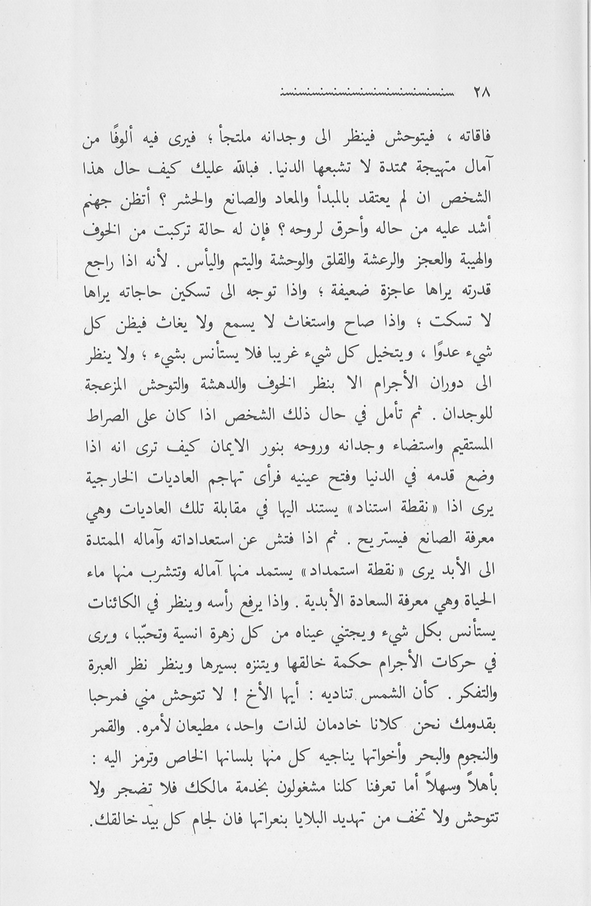 ٢٨
فاقاته ، فيتوحش فينظر الى وجدانه ملتجأ ؛ فيرى فيه ألوفًا من
آمال متهيجة ممتدة لا تشبعها الدنيا. فبالله عليك كيف حال هذا
الشخص ان لم يعتقد بالمبدأ والمعاد والصانع والحشر ؟ أتظن جهنم
أشد عليه من حاله وأحرق لروحه ؟ فإن له حالة تركبت من الخوف
والهيبة والعجز والرعشة والقلق والوحشة واليتم واليأس . لأنه اذا راجع
قدرته يراها عاجزة ضعيفة ؛ واذا توجه الى تسكين حاجاته يراها
لا تسكت ؛ واذا صاح واستغاث لا يسمع ولا يغاث فيظن كل
شيء عدوًا ، ويتخيل كل شيء غريبا فلا يستأنس بشيء ؛ ولا ينظر
الى دوران الأجرام الا بنظر الخوف والدهشة والتوحش المزعجة
للوجدان . ثم تأمل في حال ذلك الشخص اذا كان على الصراط
المستقيم واستضاء وجدانه وروحه بنور الايمان كيف ترى انه اذا
وضع قدمه في الدنيا وفتح عينيه فرأى تهاجم العاديات الخارجية
يرى اذا «نقطة استناد» يستند اليها في مقابلة تلك العاديات وهي
معرفة الصانع فيستريح . ثم اذا فتش عن استعداداته وآماله الممتدة
الى الأبد يرى «نقطة استمداد» يستمد منها آماله وتتشرب منها ماء
الحياة وهي معرفة السعادة الأبدية . واذا يرفع رأسه وينظر في الكائنات
يستأنس بكل شيء ويجتني عيناه من كل زهرة انسية وتحبّبا، ويرى
في حركات الأجرام حكمة خالقها ويتنزه بسيرها وينظر نظر العبرة
والتفكر . كأن الشمس تناديه : أيها الأخ ! لا تتوحش مني فمرحبا
بقدومك نحن كلانا خادمان لذات واحد، مطيعان لأمره. والقمر
والنجوم والبحر وأخواتها يناجيه كل منها بلسانها الخاص وترمز اليه :
بأهلاً وسهلاً أما تعرفنا كلنا مشغولون بخدمة مالكك فلا تضجر ولا
تتوحش ولا تخف من تهديد البلايا بنعراتها فان لجام كل بيد خالقك.